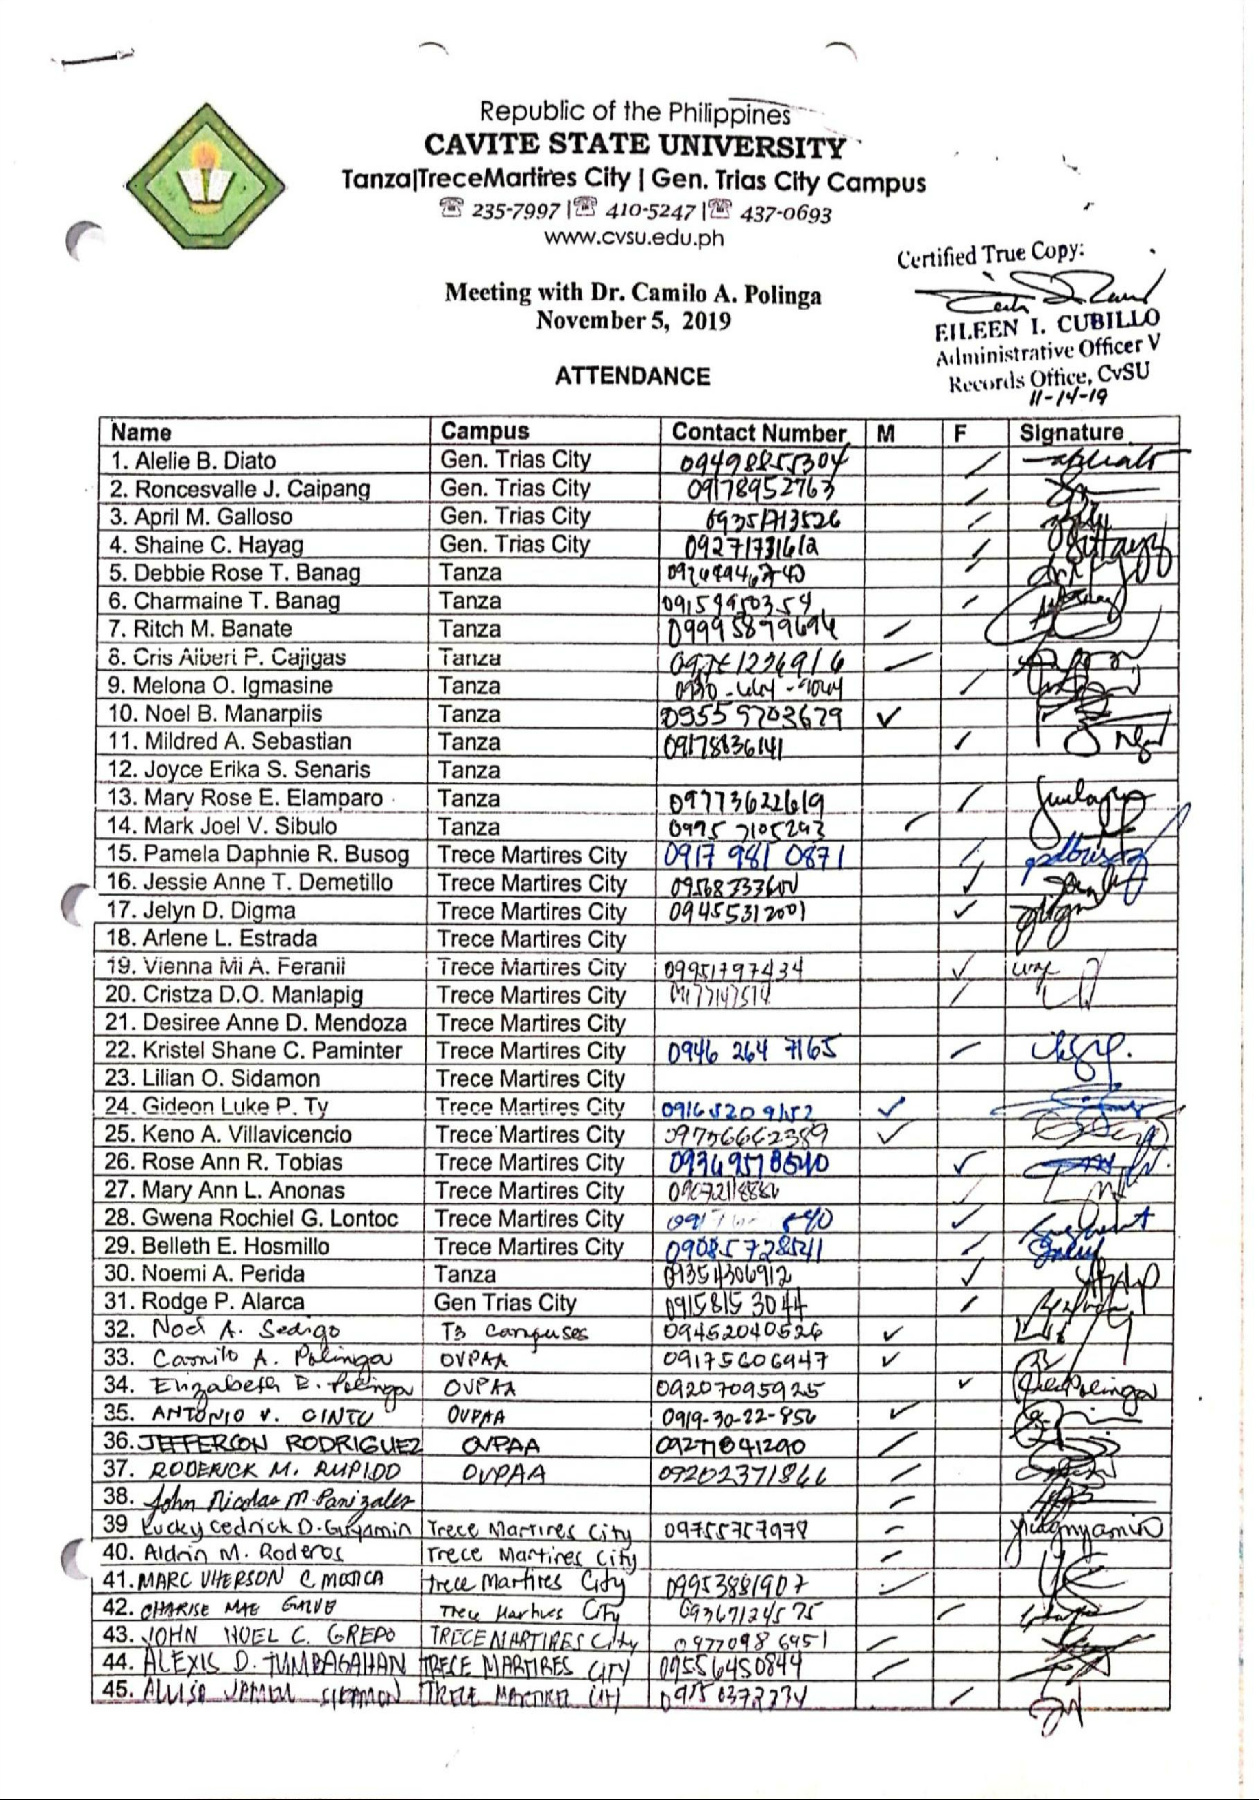 Republic of the Philippines
CAVITE STATE UNIVERSITY
Tanza|TreceMartires City | Gen. Trias City Campus
☏ 235-7997 |☏ 410-5247 |☏ 437-0693
www.cvsu.edu.ph
Certified True Copy:
EILEEN I. CUBILLO
Administrative Officer V
Records Office, CvSU
11-14-19
Meeting with Dr. Camilo A. Polinga
November 5, 2019
ATTENDANCE
Name Campus Contact Number M F Signature
1. Alelie B. Diato Gen. Trias City 09498855304
2. Roncesvalle J. Caipang Gen. Trias City 09178952763
3. April M. Galloso Gen. Trias City
4. Shaine C. Hayag Gen. Trias City 09271731612
5. Debbie Rose T. Banag Tanza
6. Charmaine T. Banag Tanza
7. Ritch M. Banate Tanza
8. Cris Alberi P. Cajigas Tanza
9. Melona O. Igmasine Tanza
10. Noel B. Manarpiis Tanza 09559703679
11. Mildred A. Sebastian Tanza 09178836141
12. Joyce Erika S. Senaris Tanza
13. Mary Rose E. Elamparo Tanza 09773622619
14. Mark Joel V. Sibulo Tanza 0995 7105293
15. Pamela Daphnie R. Busog Trece Martires City 0917 981 0871
16. Jessie Anne T. Demetillo Trece Martires City
17. Jelyn D. Digma Trece Martires City 09455312001
18. Arlene L. Estrada Trece Martires City
19. Vienna Mi A. Feranil Trece Martires City 09951797434
20. Cristza D.O. Manlapig Trece Martires City
21. Desiree Anne D. Mendoza Trece Martires City
22. Kristel Shane C. Paminter Trece Martires City 0946 264 7165
23. Lilian O. Sidamon Trece Martires City
24. Gideon Luke P. Ty Trece Martires City 09165209152
25. Keno A. Villavicencio Trece Martires City 09756662389
26. Rose Ann R. Tobias Trece Martires City 09369578540
27. Mary Ann L. Anonas Trece Martires City
28. Gwena Rochiel G. Lontoc Trece Martires City
29. Belleth E. Hosmillo Trece Martires City
30. Noemi A. Perida Tanza 09354306912
31. Rodge P. Alarca Gen Trias City 0915815 3044
32. Noel A. Sedigo T3 Campuses 09452040526
33. Camilo A. Polinga OVPAA 09175606947
34. Elizabeth E. Polinga OVPAA 09207095925
35. ANTONIO V. CINTU OVPAA 0919-30-22-856
36. JEFFERSON RODRIGUEZ OVPAA 09271841290
37. RODERICK M. RUPIDO OVPAA 09202371866
38. John Nicolas M. Panizales
39 Lucky Cedrick D. Guyamin Trece Martires City 09755757978
40. Aldrin M. Roderos Trece Martires City
41. MARC VHERSON C. MOJICA Trece Martires City 09953881907
42. CHARISE MAE GALVE Trece Martires City 09367124575
43. JOHN NOEL C. GREPO TRECE MARTIRES City 09770986951
44. ALEXIS D. TUMBAGAHAN TRECE MARTIRES CITY 09556450844
45. TRECE MARTIRES CITY